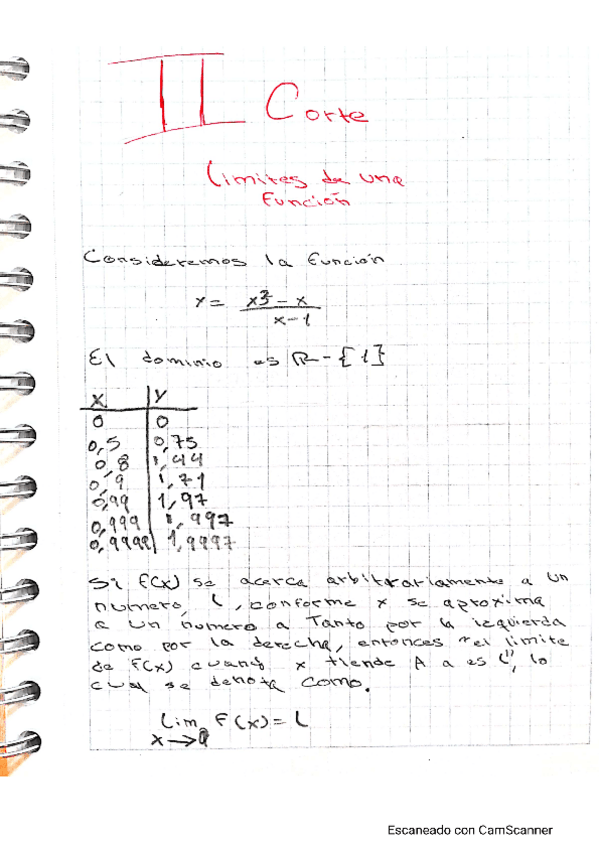 II Corte
Limites de una
Función
Consideremos la función
Y = x³ - x
x - 1
El dominio es R - {1}
X | Y
0 | 0
0,5 | 0,75
0,8 | 1,44
0,9 | 1,71
0,99 | 1,97
0,999 | 1,997
0,9999 | 1,9997
Si f(x) se acerca arbitrariamente a un
numero, L, conforme x se aproxima
a un numero a Tanto por la izquierda
como por la derecha, entonces "el limite
de f(x) cuando x tiende A a es L", lo
cual se denota como.
Lim F(x) = L
x → a
Escaneado con CamScanner